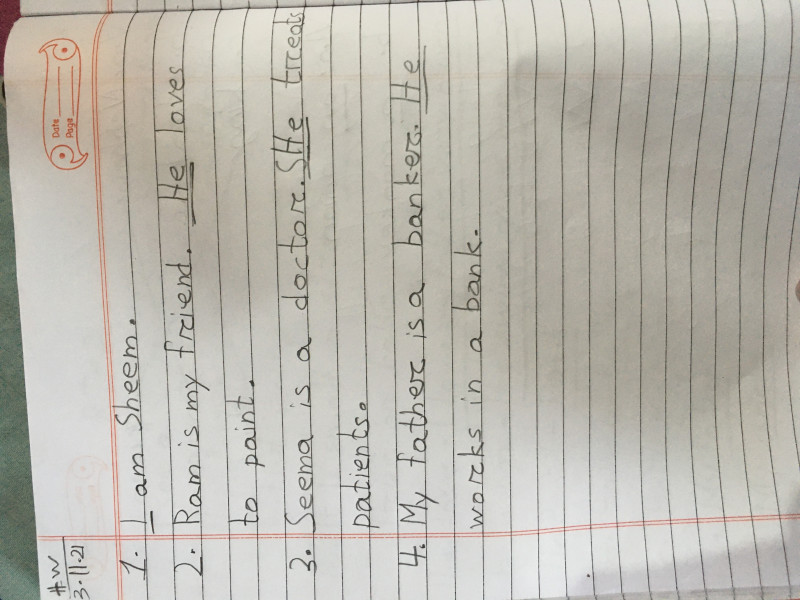 Date
Page
H.W
3.11.21
1. I am Sheem.
2. Ram is my friend. He loves
to paint.
3. Seema is a doctor. SHe treats
patients.
4. My father is a banker. He
works in a bank.